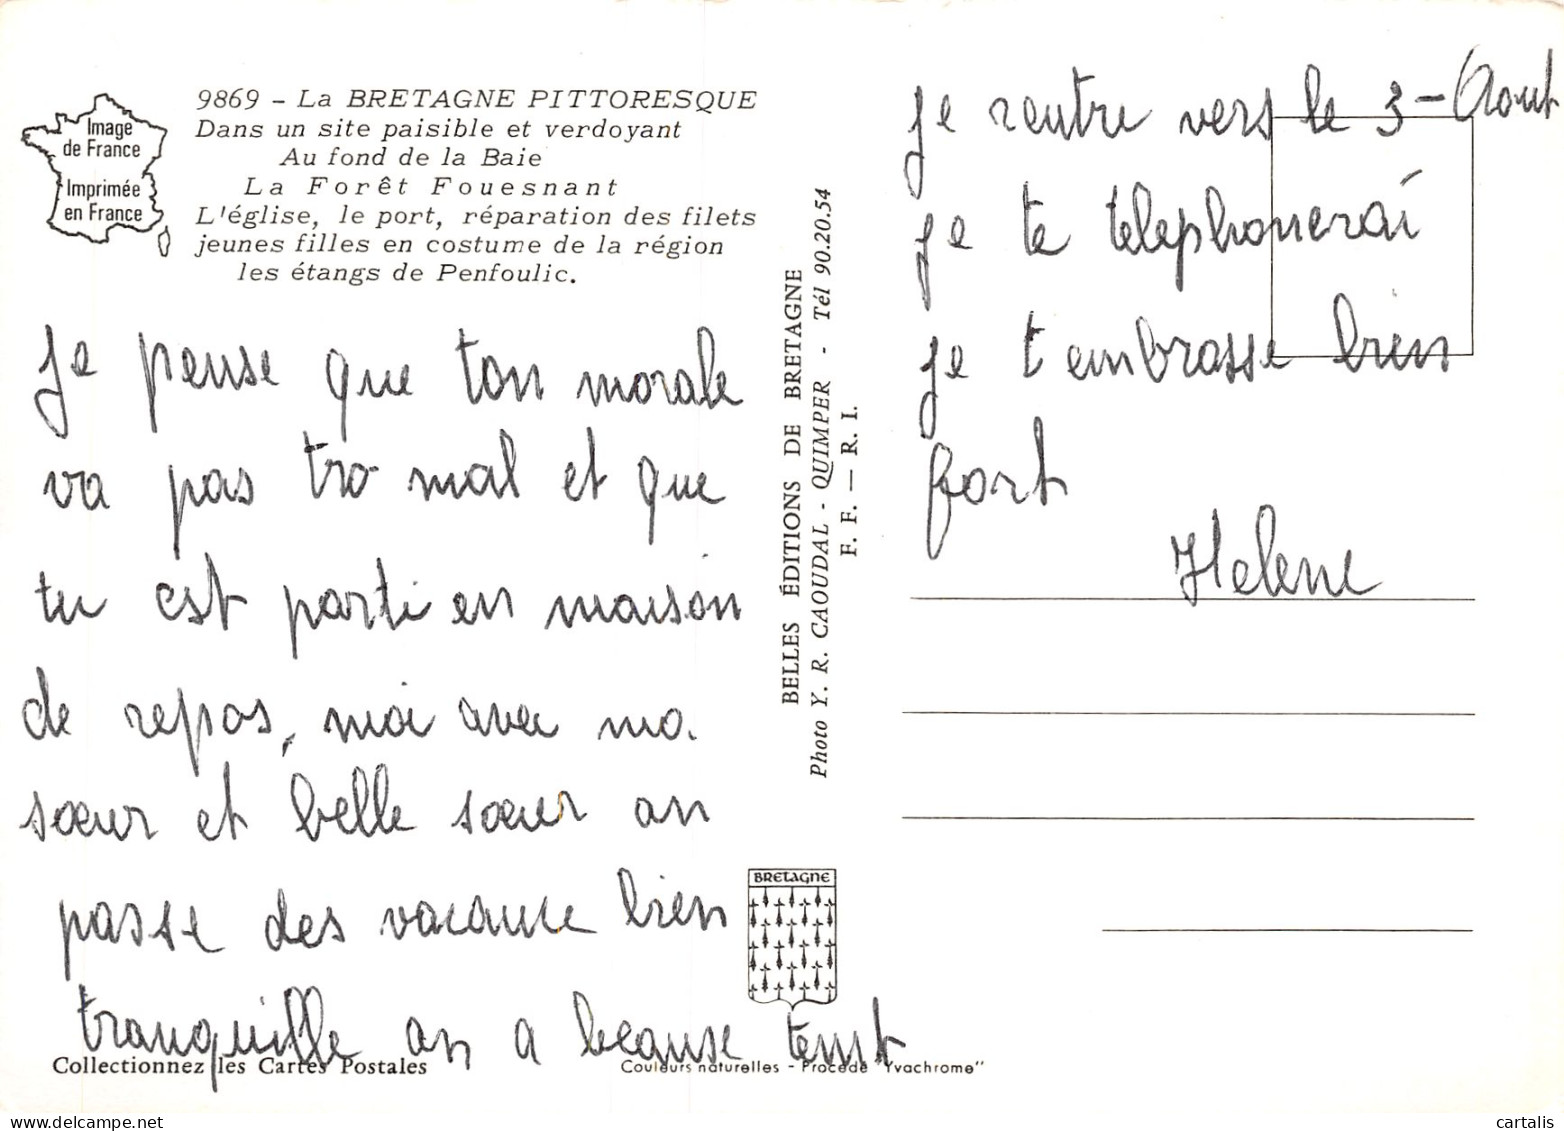 Image
de France
Imprimée
en France
9869 - La BRETAGNE PITTORESQUE
Dans un site paisible et verdoyant
Au fond de la Baie
La Forêt Fouesnant
L'église, le port, réparation des filets
jeunes filles en costume de la région
les étangs de Penfoulic.
Je pense que ton morale
va pas tro mal et que
tu est parti en maison
de repos, moi avec ma
sœur et belle sœur on
passe des vacance bien
tranquille on a beause temst
Collectionnez les Cartes Postales
BELLES ÉDITIONS DE BRETAGNE
Photo Y. R. CAOUDAL - QUIMPER - Tél 90.20.54
F. F. — R. I.
BRETAGNE
Couleurs naturelles - Procédé "Yvachrome"
je rentre vers le 3 - Aout
je te telephonerai
je t embrasse bien
fort
Helene
cartalis